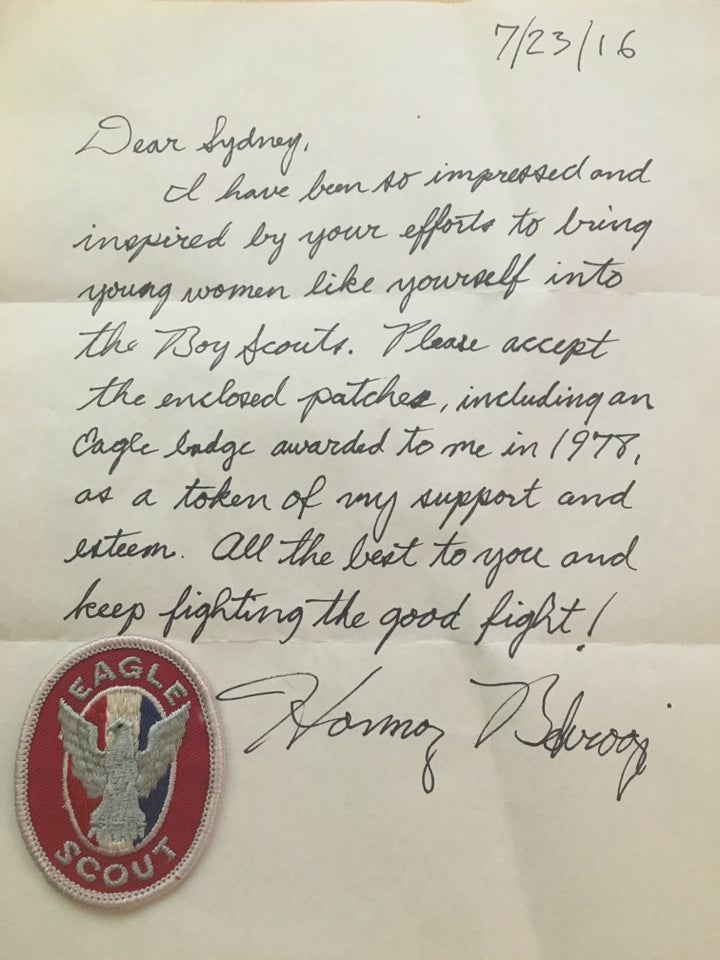 7/23/16
Dear Sydney,
I have been so impressed and
inspired by your efforts to bring
young women like yourself into
the Boy Scouts. Please accept
the enclosed patches, including an
Eagle badge awarded to me in 1978,
as a token of my support and
esteem. All the best to you and
keep fighting the good fight!
Hormoz
EAGLE
SCOUT